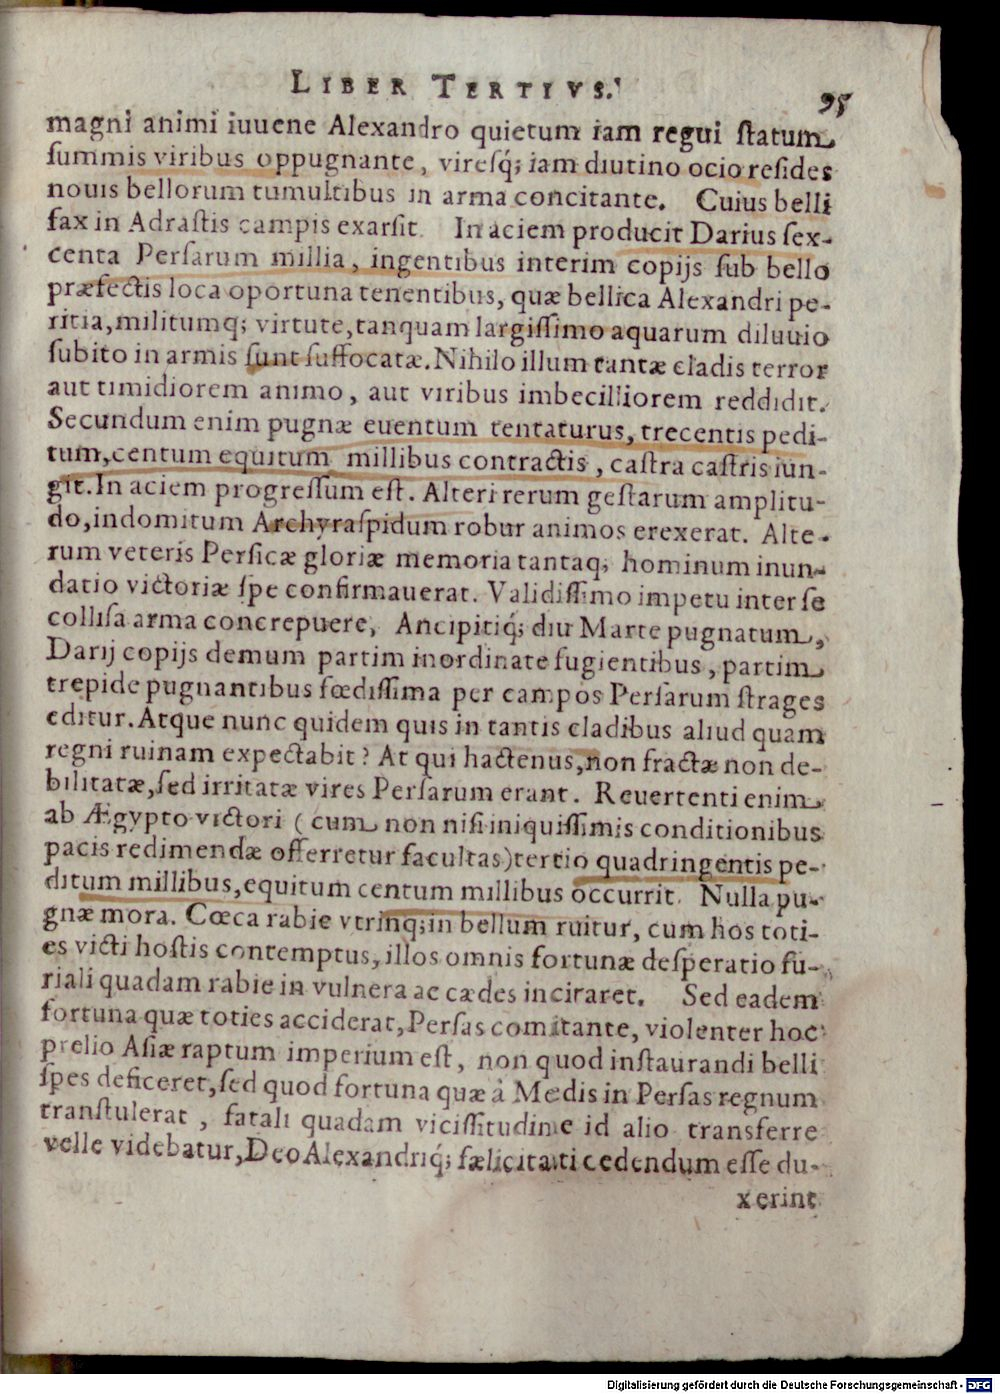 LIBER TERTIVS.
95
magni animi iuuene Alexandro quietum iam regni statum
summis viribus oppugnante, viresq́; iam diutino ocio resides
nouis bellorum tumultibus in arma concitante. Cuius belli
fax in Adrastis campis exarsit. In aciem producit Darius sex-
centa Persarum millia, ingentibus interim copijs sub bello
præfectis loca oportuna tenentibus, quæ bellica Alexandri pe-
ritia, militumq; virtute, tanquam largissimo aquarum diluuio
subito in armis sunt suffocatæ. Nihilo illum tantæ cladis terror
aut timidiorem animo, aut viribus imbecilliorem reddidit.
Secundum enim pugnæ euentum tentaturus, trecentis pedi-
tum, centum equitum millibus contractis, castra castris iun-
git. In aciem progressum est. Alteri rerum gestarum amplitu-
do, indomitum Archyraspidum robur animos erexerat. Alte-
rum veteris Persicæ gloriæ memoria tantaq; hominum inun-
datio victoriæ spe confirmauerat. Validissimo impetu inter se
collisa arma concrepuere, Ancipitiq́; diu Marte pugnatum,
Darij copijs demum partim inordinate fugientibus, partim
trepide pugnantibus fœdissima per campos Persarum strages
editur. Atque nunc quidem quis in tantis cladibus aliud quam
regni ruinam expectabit? At qui hactenus, non fractæ non de-
bilitatæ, sed irritatæ vires Persarum erant. Reuertenti enim
ab Ægypto victori (cum non nisi iniquissimis conditionibus
pacis redimendæ offerretur facultas) tertio quadringentis pe-
ditum millibus, equitum centum millibus occurrit. Nulla pu-
gnæ mora. Cœca rabie vtrinq; in bellum ruitur, cum hos toti-
es victi hostis contemptus, illos omnis fortunæ desperatio fu-
riali quadam rabie in vulnera ac cædes incitaret. Sed eadem
fortuna quæ toties acciderat, Persas comitante, violenter hoc
prelio Asiæ raptum imperium est, non quod instaurandi belli
spes deficeret, sed quod fortuna quæ à Medis in Persas regnum
transtulerat, fatali quadam vicissitudine id alio transferre
velle videbatur, Deo Alexandriq́; fælicitati cedendum esse du-
xerint
Digitalisierung gefördert durch die Deutsche Forschungsgemeinschaft - DFG